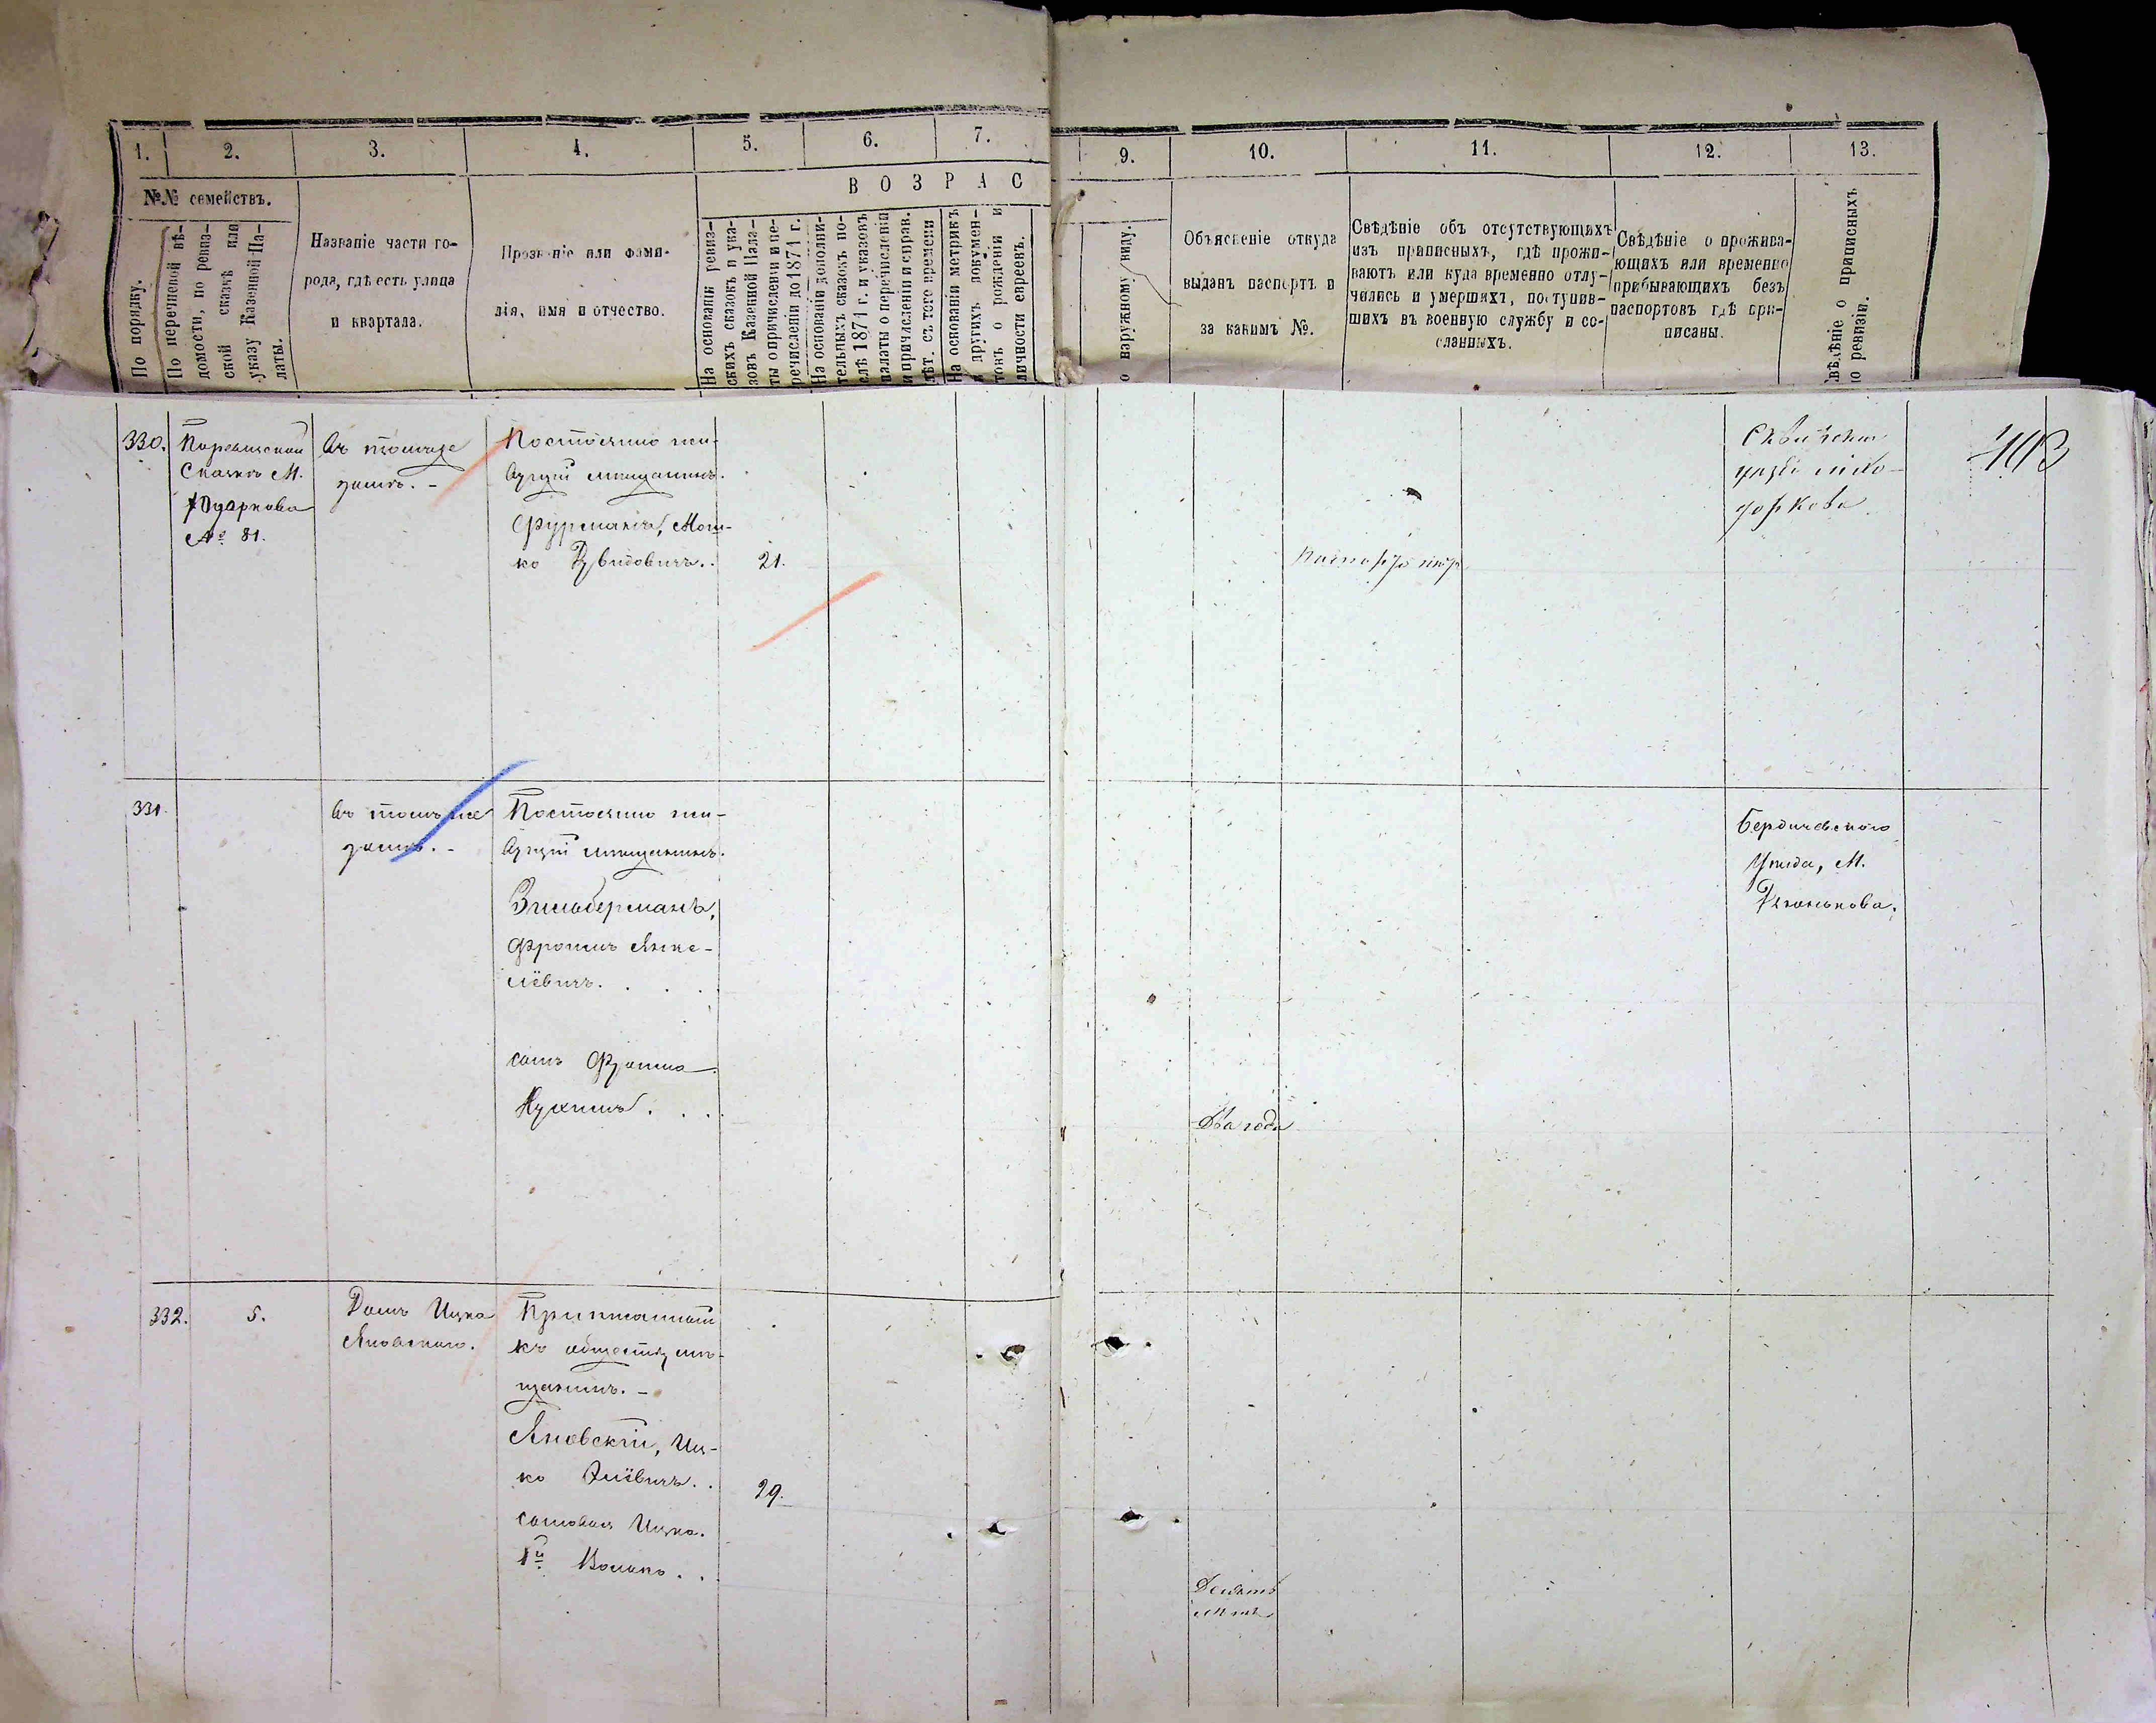 1.
2.
3.
4.
5.
6.
7.
9.
10.
11.
12.
13.
№№ семействъ.
В О З Р А С
По порядку.
По перечневой вѣ-
домости, по ревиз-
ской сказкѣ или
указу Казенной Па-
латы.
Названіе части го-
рода, гдѣ есть улица
и квартала.
Прозваніе или фами-
лія, имя и отчество.
На основаніи ревиз-
скихъ сказокъ и ука-
зовъ Казенной Пала-
ты о причисленіи и пе-
речисленіи до 1871 г.
На основаніи дополни-
тельныхъ сказокъ по-
слѣ 1871 г. и указовъ
палаты о перечисленіи
и причисленіи и справ.
лѣт. съ того времени
На основаніи метрикъ
и другихъ докумен-
товъ о рожденіи и
личности евреевъ.
о наружному виду.
Объясненіе откуда
выданъ паспортъ и
за какимъ №.
Свѣдѣніе объ отсутствующихъ
изъ приписныхъ, гдѣ прожи-
ваютъ или куда временно отлу-
чились и умершихъ, поступив-
шихъ въ военную службу и со-
сланныхъ.
Свѣдѣніе о прожива-
ющихъ или временно
прибывающихъ безъ
паспортовъ гдѣ при-
писаны.
вѣдѣніе о приписныхъ
по ревизіи.
330.
Сказкѣ М.
№ 81.
Въ томъ же
домѣ. -
Постоянно жи-
вущій мѣщанинъ.
Фурманъ, Мош-
ко Дувидовичъ..
21.
403
331.
Въ томъ же
домѣ. -
Постоянно жи-
вущій мѣщанинъ.
Зильберманъ,
Фроимъ Янке-
лёвичъ. . . .
сынъ Фроима
Нухимъ. . .
Два года
Бердичевского
Уѣзда, М.
332.
5.
Домъ Ицка
Яновскаго.
Приписанный
къ обществу мѣ-
щанинъ. -
Яновскій, Иц-
ко
29.
сыновья Ицка.
1й
Десять
лѣтъ